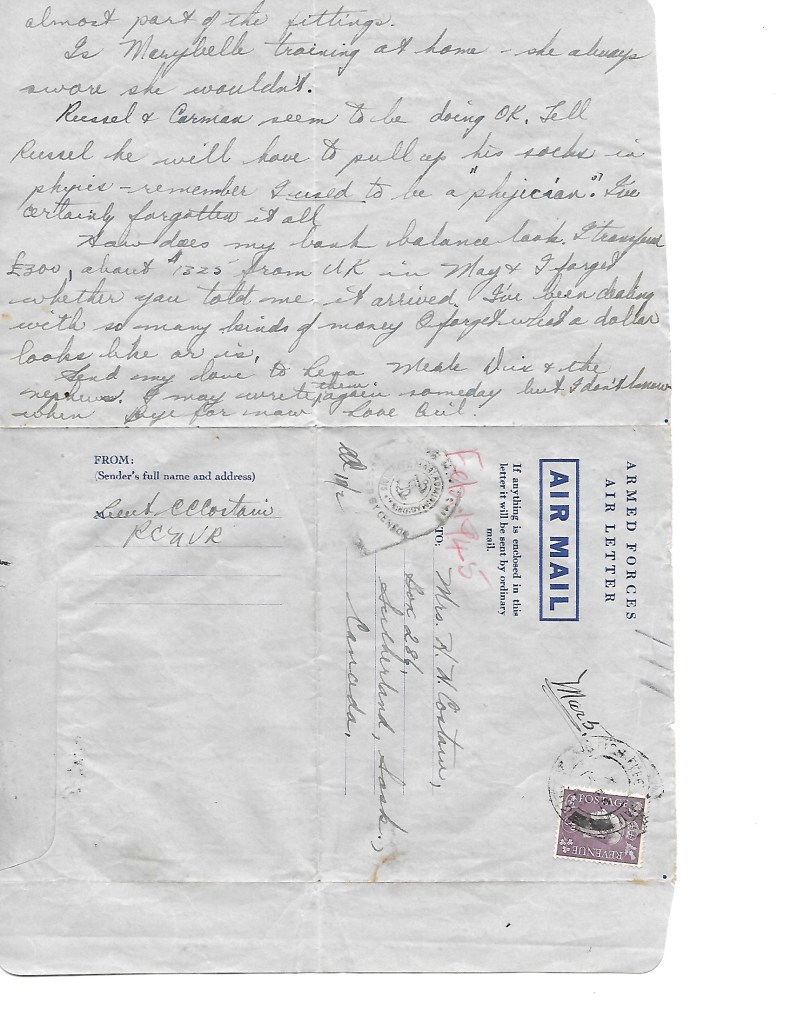 almost part of the fittings.
Is Marybelle training at home – she always
swore she wouldn't.
Russel & Carman seem to be doing OK. Tell
Russel he will have to pull up his socks in
physics – remember I used to be a "physician". I've
certainly forgotten it all
How does my bank balance look. I transferred
£300, about $1325 from UK in May & I forget
whether you told me it arrived. I've been dealing
with so many kinds of money I forget what a dollar
looks like or is.
Send my love to Lena Meah Dix & the
nephews. I may write them again someday but I don't know
when Bye for now Love Cecil.
FROM:
(Sender's full name and address)
Lieut CC Costain
RCNVR
ARMED FORCES
AIR LETTER
AIR MAIL
If anything is enclosed in this
letter it will be sent by ordinary
mail.
Feb 1945
TO:
Mrs. H. H. Costain,
Box 286,
Sutherland, Sask.,
Canada.
Mar 5
POSTAGE
REVENUE